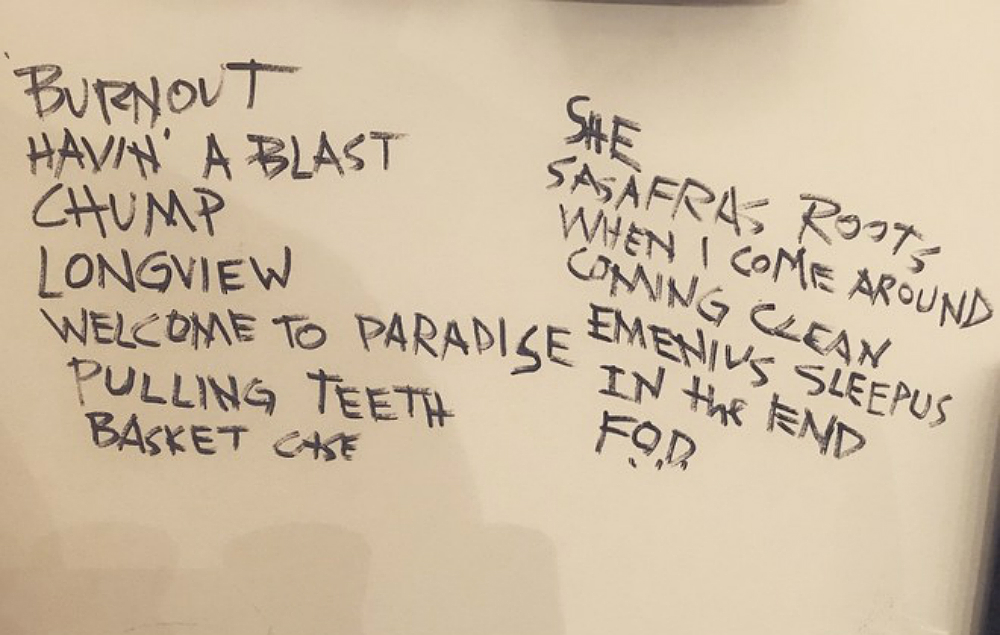 BURNOUT
HAVIN' A BLAST
CHUMP
LONGVIEW
WELCOME TO PARADISE
PULLING TEETH
BASKET CASE
SHE
SASAFRAS ROOTS
WHEN I COME AROUND
COMING CLEAN
EMENIUS SLEEPUS
IN the END
F.O.D.